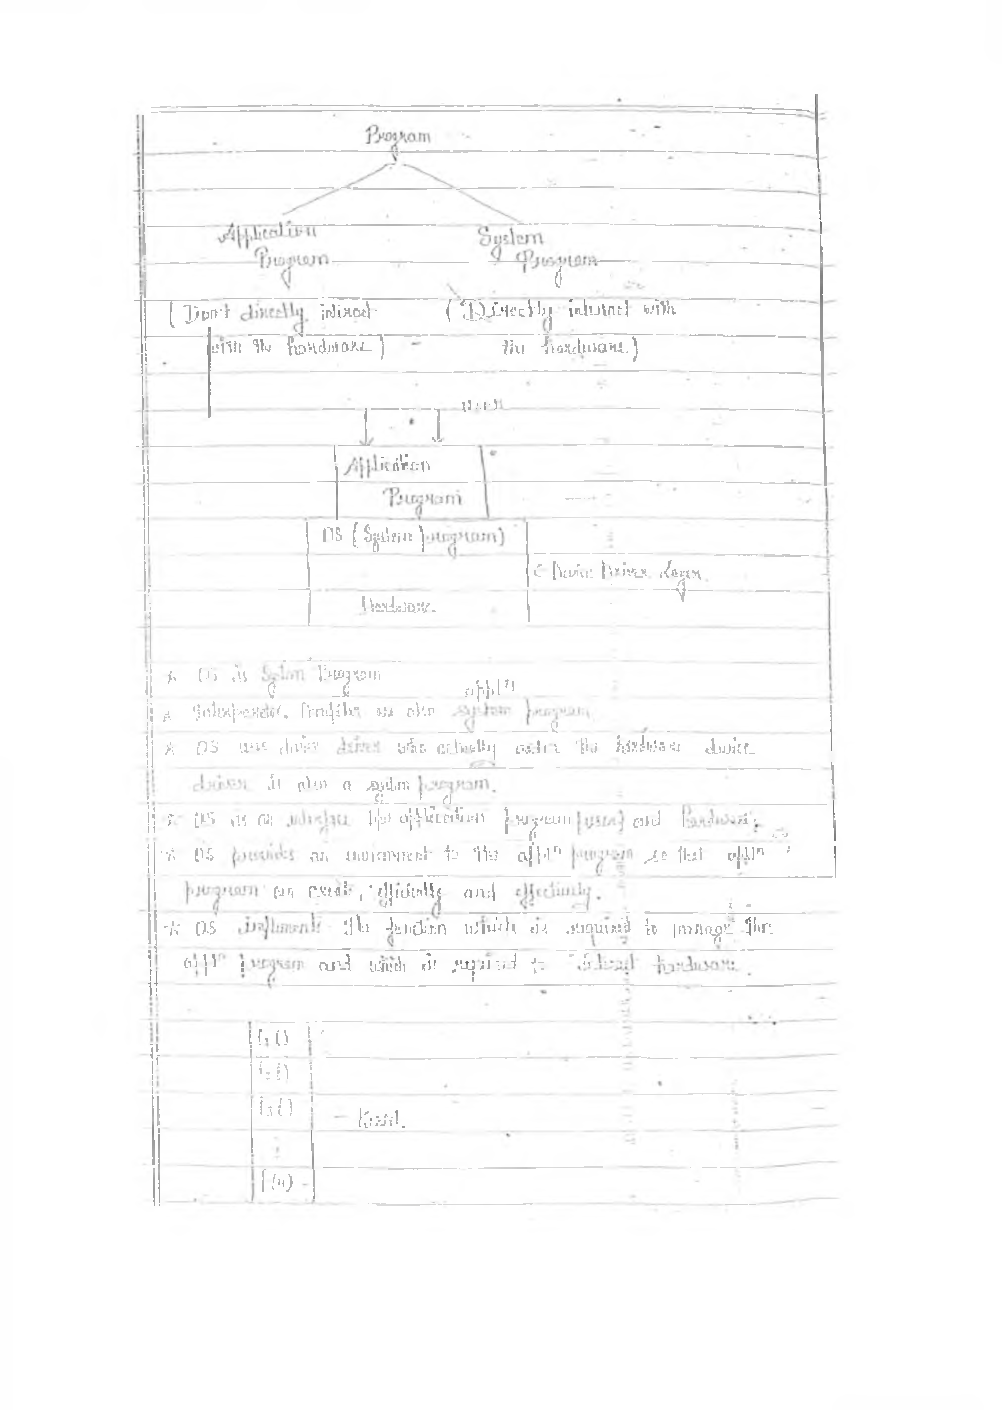 Program
Application System
Program Program
(Don't directly interact (Directly interact with
with the hardware) the hardware.)
Application
Program
OS (System program)
Device Driver Layer.
Hardware.
* OS is System Program
appln
* compiler are also system program
* OS use device driver who actually the hardware device
driver is also a system program.
* OS is an interface b/w application program [user] and Hardware.
* OS provides an environment to the appln program so that appln
program can execute efficiently and effectively.
* OS implements the function which is required to manage the
appln program and which is required to interact hardware.
f1()
f2()
f3()
- Kernel.
:
f(n)